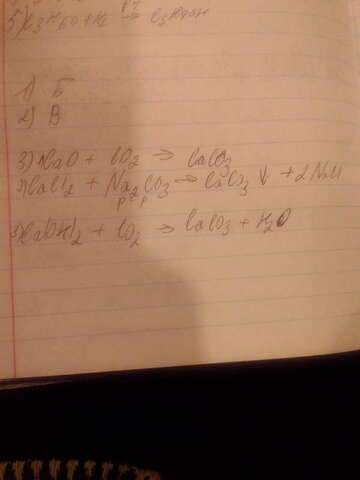 5) C3H6O + H2 → C3H7OH
1) Б
2) В
3) 1) CaO + CO2 → CaCO3
2) CaCl2 + Na2CO3 → CaCO3 ↓ + 2NaCl
р р
3) Ca(OH)2 + CO2 → CaCO3 + H2O